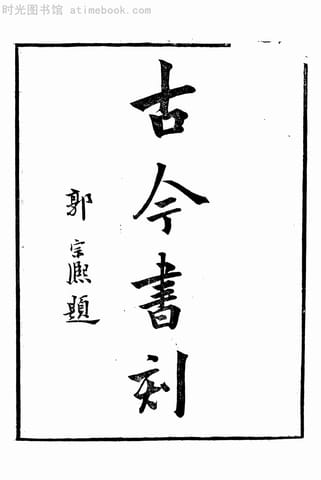 时光图书馆 atimebook.com
古今書刻
郭宗熙題